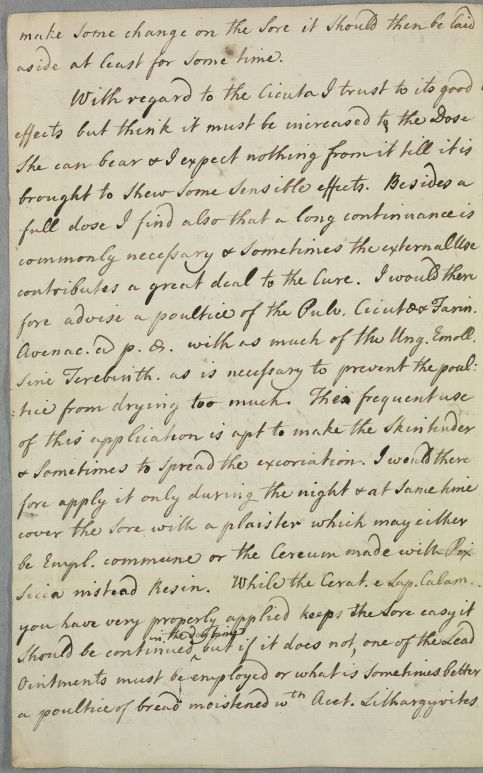 make some change on the Sore it should then be laid
aside at least for some time.
With regard to the Cicuta I trust to its good
effects but think it must be increased to the Dose
She can bear & I expect nothing from it till it is
brought to shew some sensible effects. Besides a
full dose I find also that a long continuance is
commonly necessary & sometimes the external Use
contributes a great deal to the Cure. I would there
fore advise a poultice of the Pulv. Cicutæ & Farin.
Avenac. a p. æ. with as much of the Ung. Emoll.
sine Terebinth. as is necessary to prevent the poul:
:tice from drying too much. The frequent use
of this application is apt to make the Skin tender
& sometimes to spread the excoriation. I would there
fore apply it only during the night & at same time
cover the Sore with a plaister which may either
be Empl. commune or the Cereum made with Pix
Sicca instead Resin. While the Cerat. e Lap. Calam.
you have very properly applied keeps the Sore easy it
in the day time
should be continued but if it does not, one of the Lead
Ointments must be employed or what is sometimes better
a poultice of bread moistened wth Acet. Lithargyrites